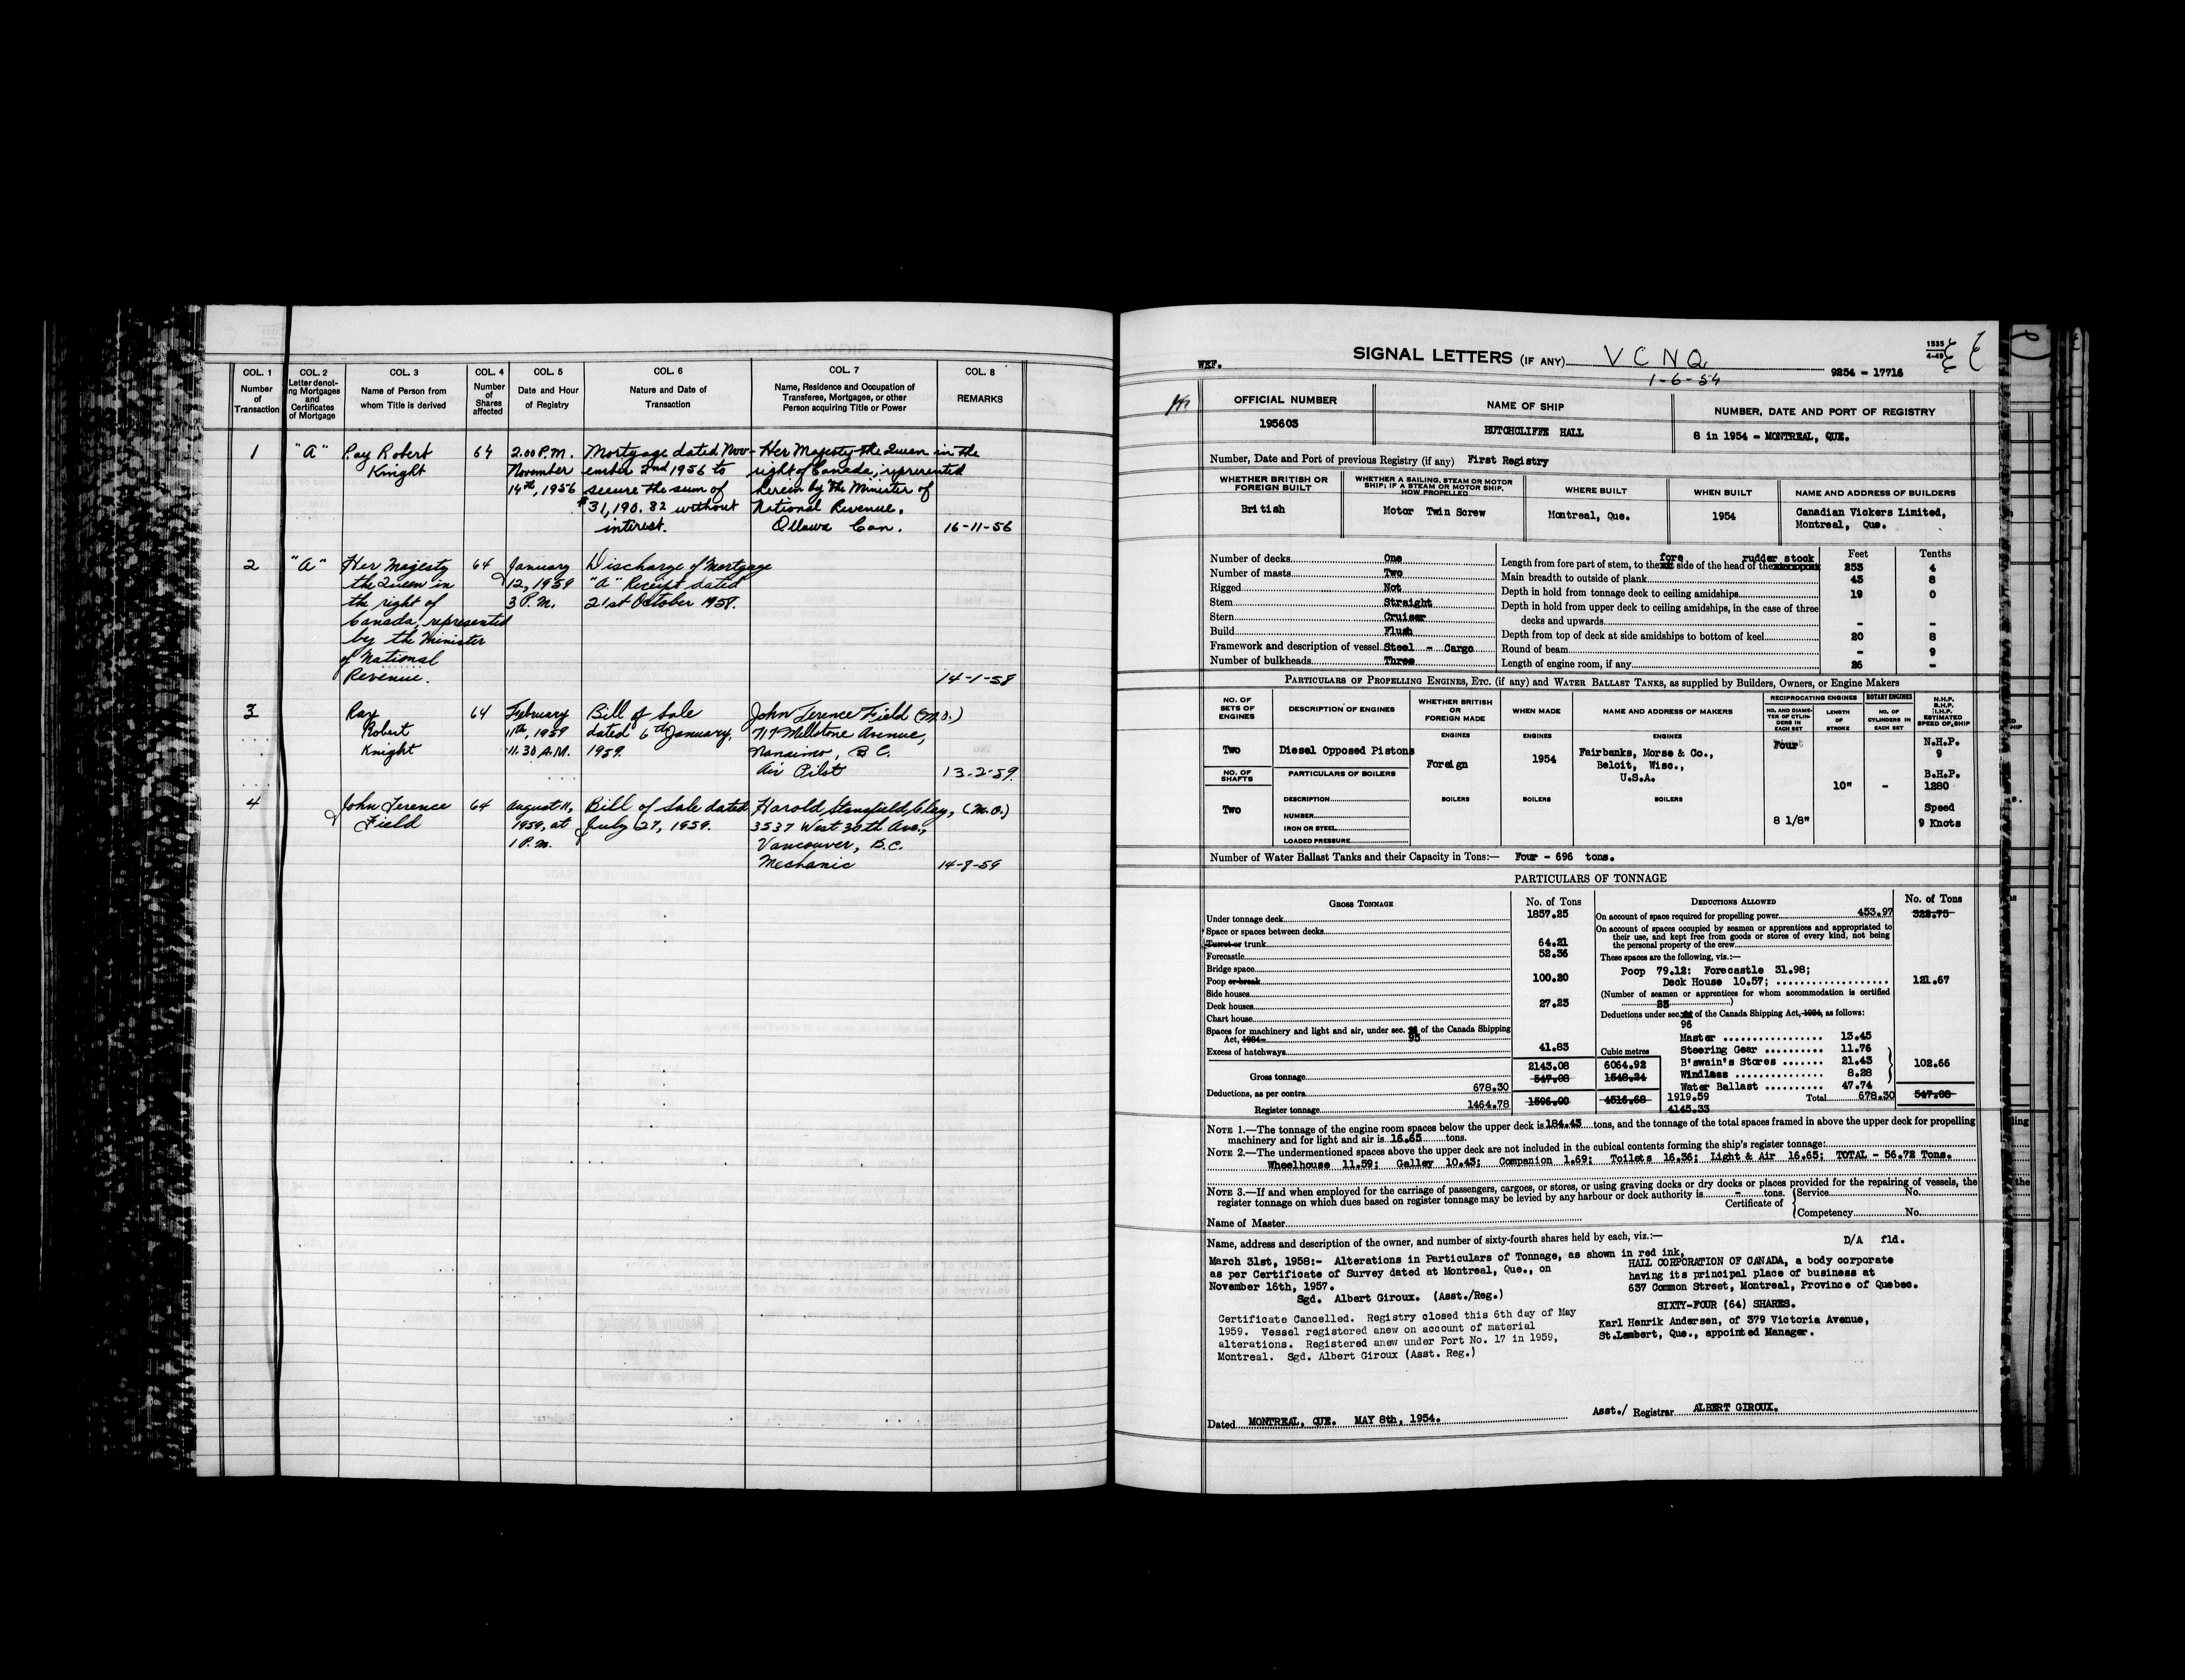 COL. 1 COL. 2 COL. 3 COL. 4 COL. 5 COL. 6 COL. 7 COL. 8
Number of Transaction
Letter denoting Mortgages and Certificates of Mortgage
Name of Person from whom Title is derived
Number of Shares affected
Date and Hour of Registry
Nature and Date of Transaction
Name, Residence and Occupation of Transferee, Mortgagee, or other Person acquiring Title or Power
REMARKS
1 "A" Ray Robert 64 2.00 P.M. Mortgage dated Nov- Her Majesty the Queen in the
Knight November ember 2nd 1956 to right of Canada, represented
14th, 1956 secure the sum of herein by the Minister of
$31,190.82 without National Revenue.
interest. Ottawa Can. 16-11-56
2 "A" Her Majesty 64 January Discharge of Mortgage
the Queen in 12, 1959 "A" Receipt dated
the right of 3 P.M. 21st October 1958.
Canada, represented
by the Minister
of National
Revenue. 14-1-58
3 Ray 64 February Bill of Sale John Terence Field (M.O.)
Robert 11th, 1959 dated 6th January, 717 Millstone Avenue,
Knight 11.30 A.M. 1959. Nanaimo, B.C.
Air Pilot 13-2-59.
4 John Terence 64 August 11, Bill of Sale dated Harold Stangfield Clay, (M.O.)
Field 1959, at July 27, 1959. 3537 West 30th Ave.,
1 P.M. Vancouver, B.C.
Mechanic 14-8-59
WEF. SIGNAL LETTERS (IF ANY) V C N Q 9254 - 17716
1-6-54
1535
4-49
OFFICIAL NUMBER NAME OF SHIP NUMBER, DATE AND PORT OF REGISTRY
195603 HUTCHCLIFFE HALL 8 in 1954 - MONTREAL, QUE.
Number, Date and Port of previous Registry (if any) First Registry
WHETHER BRITISH OR FOREIGN BUILT
WHETHER A SAILING, STEAM OR MOTOR SHIP; IF A STEAM OR MOTOR SHIP, HOW PROPELLED
WHERE BUILT WHEN BUILT NAME AND ADDRESS OF BUILDERS
British Motor Twin Screw Montreal, Que. 1954 Canadian Vickers Limited,
Montreal, Que.
Feet Tenths
Number of decks One
Number of masts Two
Rigged Not
Stem Straight
Stern Cruiser
Build Flush
Framework and description of vessel Steel - Cargo
Number of bulkheads Three
fore rudder stock
Length from fore part of stem, to the side of the head of the 253 4
Main breadth to outside of plank 43 8
Depth in hold from tonnage deck to ceiling amidships 19 0
Depth in hold from upper deck to ceiling amidships, in the case of three
decks and upwards - -
Depth from top of deck at side amidships to bottom of keel 20 8
Round of beam - 9
Length of engine room, if any 26 -
PARTICULARS OF PROPELLING ENGINES, ETC. (if any) and WATER BALLAST TANKS, as supplied by Builders, Owners, or Engine Makers
NO. OF SETS OF ENGINES
DESCRIPTION OF ENGINES
WHETHER BRITISH OR FOREIGN MADE
WHEN MADE
NAME AND ADDRESS OF MAKERS
RECIPROCATING ENGINES ROTARY ENGINES
NO. AND DIAMETER OF CYLINDERS IN EACH SET
LENGTH OF STROKE
NO. OF CYLINDERS IN EACH SET
N.H.P. B.H.P. I.H.P. ESTIMATED SPEED OF SHIP
ENGINES ENGINES ENGINES
Two Diesel Opposed Pistons Foreign 1954 Fairbanks, Morse & Co.,
Beloit, Wisc.,
U.S.A.
Four 10" - N.H.P.
9
B.H.P.
1280
NO. OF SHAFTS PARTICULARS OF BOILERS
Two DESCRIPTION BOILERS BOILERS BOILERS
NUMBER
IRON OR STEEL
LOADED PRESSURE
8 1/8" Speed
9 Knots
Number of Water Ballast Tanks and their Capacity in Tons:— Four - 696 tons.
PARTICULARS OF TONNAGE
GROSS TONNAGE No. of Tons
Under tonnage deck 1857.25
Space or spaces between decks
Turret or trunk 64.21
Forecastle 52.36
Bridge space
Poop or break 100.20
Side houses
Deck houses 27.23
Chart house
Spaces for machinery and light and air, under sec. 95 of the Canada Shipping
Act, 1934
Excess of hatchways 41.83 Cubic metres
Gross tonnage 2143.08 6064.92
Deductions, as per contra 678.30 547.08 1548.24 1919.59
Register tonnage 1464.78 1596.00 4516.68 4145.33
DEDUCTIONS ALLOWED No. of Tons
On account of space required for propelling power 453.97 322.75
On account of spaces occupied by seamen or apprentices and appropriated to
their use, and kept free from goods or stores of every kind, not being
the personal property of the crew
These spaces are the following, viz.:—
Poop 79.12: Forecastle 31.98;
Deck House 10.57; 121.67
(Number of seamen or apprentices for whom accommodation is certified
23)
Deductions under sec. of the Canada Shipping Act, 1934, as follows:
96
Master 13.45
Steering Gear 11.76
B'swain's Stores 21.43 102.66
Windlass 8.28
Water Ballast 47.74
Total 678.30 547.08
NOTE 1.—The tonnage of the engine room spaces below the upper deck is 184.43 tons, and the tonnage of the total spaces framed in above the upper deck for propelling
machinery and for light and air is 16.65 tons.
NOTE 2.—The undermentioned spaces above the upper deck are not included in the cubical contents forming the ship's register tonnage:
Wheelhouse 11.59; Galley 10.43; Companion 1.69; Toilets 16.36; Light & Air 16.65; TOTAL - 56.72 Tons.
NOTE 3.—If and when employed for the carriage of passengers, cargoes, or stores, or using graving docks or dry docks or places provided for the repairing of vessels, the
register tonnage on which dues based on register tonnage may be levied by any harbour or dock authority is - tons.
Certificate of Service No.
Competency No.
Name of Master
Name, address and description of the owner, and number of sixty-fourth shares held by each, viz.:— D/A fld.
March 31st, 1958:- Alterations in Particulars of Tonnage, as shown in red ink,
as per Certificate of Survey dated at Montreal, Que., on
November 16th, 1957.
Sgd. Albert Giroux. (Asst./Reg.)
HALL CORPORATION OF CANADA, a body corporate
having its principal place of business at
637 Common Street, Montreal, Province of Quebec.
SIXTY-FOUR (64) SHARES.
Certificate Cancelled. Registry closed this 6th day of May
1959. Vessel registered anew on account of material
alterations. Registered anew under Port No. 17 in 1959,
Montreal. Sgd. Albert Giroux (Asst. Reg.)
Karl Henrik Andersen, of 379 Victoria Avenue,
St.Lambert, Que., appointed Manager.
Dated MONTREAL, QUE. MAY 8th, 1954. Asst./ Registrar ALBERT GIROUX.